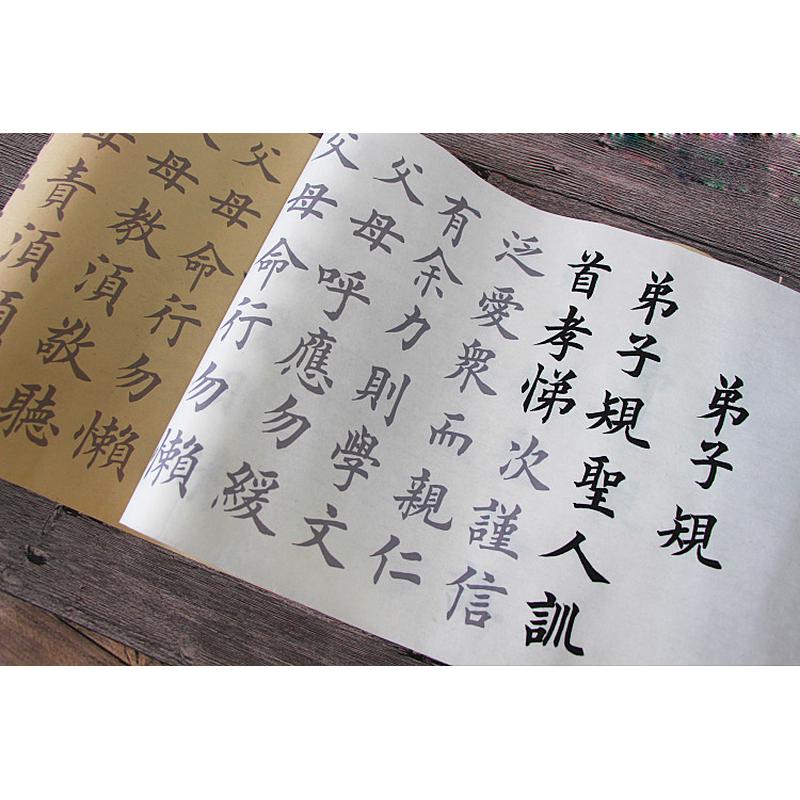 弟子規
弟子規聖人訓
首孝悌次謹信
泛愛衆而親仁
有余力則學文
父母呼應勿緩
父母命行勿懶
父母命行勿懶
父母教須敬聽
母責須